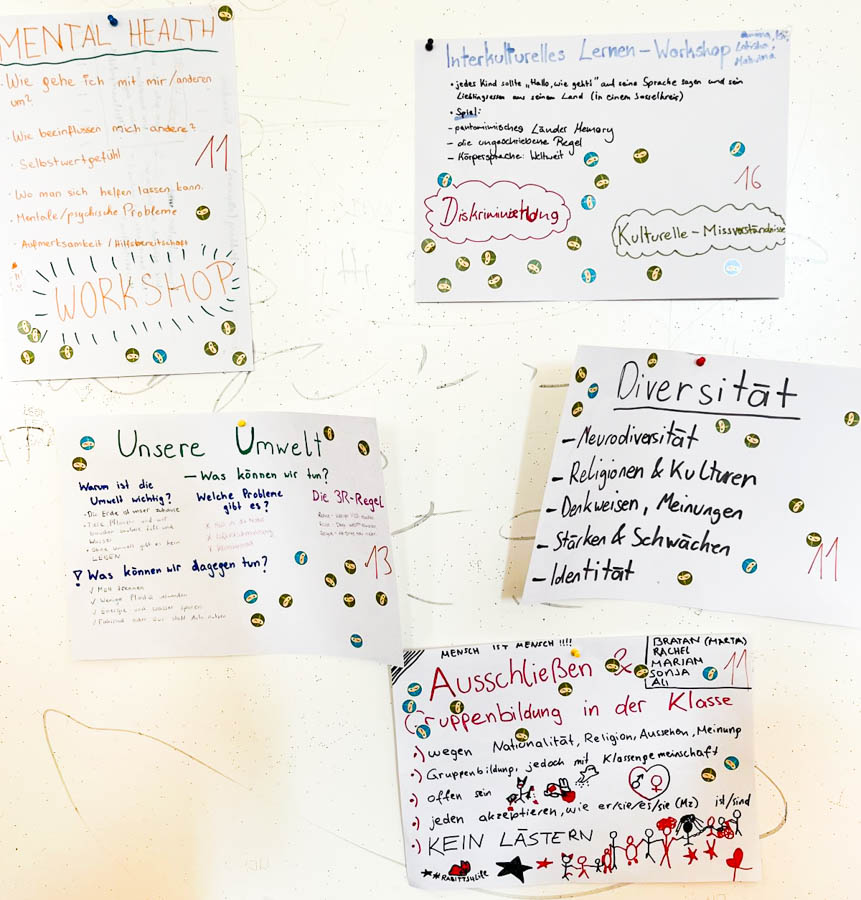 MENTAL HEALTH
• Wie gehe ich mit mir/anderen
um?
• Wie beeinflussen mich andere?
• Selbstwertgefühl
11
• Wo man sich helfen lassen kann.
• Mentale/psychische Probleme
• Aufmerksamkeit/Hilfsbereitschaft
WORKSHOP
Interkulturelles Lernen - Workshop
• jedes Kind sollte „Hallo, wie geht's" auf seine Sprache sagen und sein
Lieblingsessen aus seinem Land (in einem Sesselkreis)
• Spiel:
- pantomimisches Länder Memory
- die ungeschriebene Regel
- Körpersprache: Weltweit
16
Diskriminierung
Kulturelle - Missverständnisse
Unsere Umwelt
- Was können wir tun?
Warum ist die
Umwelt wichtig?
• Die Erde ist unser zuhause
• Tiere, Pflanzen und wir
brauchen saubere Luft und
Wasser
• Ohne Umwelt gibt es kein
LEBEN
Welche Probleme
gibt es?
Die 3R-Regel
13
! Was können wir dagegen tun?
✓ Müll trennen
✓ Wenige Plastik verwenden
✓ Energie und Wasser sparen
✓ Fahrrad oder Bus statt Auto nutzen
Diversität
- Neurodiversität
- Religionen & Kulturen
- Denkweisen, Meinungen
- Stärken & Schwächen
- Identität
11
MENSCH IST MENSCH !!!!
BRATAN (MARTA)
RACHEL
MARIAN
SONJA
ALI
11
Ausschließen &
Gruppenbildung in der Klasse
•) wegen Nationalität, Religion, Aussehen, Meinung
•) Gruppenbildung, jedoch mit Klassengemeinschaft
•) offen sein
•) jeden akzeptieren, wie er/sie/es/sie (Mz) ist/sind
•) KEIN LÄSTERN
#RABITTS4life